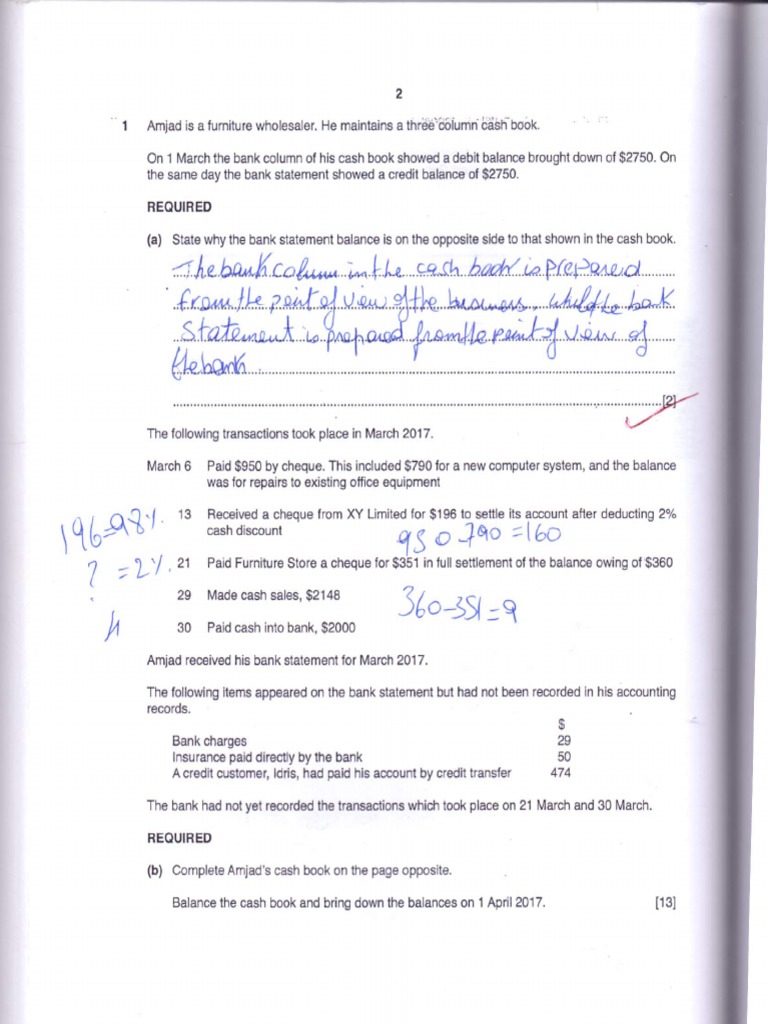 2
1 Amjad is a furniture wholesaler. He maintains a three column cash book.
On 1 March the bank column of his cash book showed a debit balance brought down of $2750. On
the same day the bank statement showed a credit balance of $2750.
REQUIRED
(a) State why the bank statement balance is on the opposite side to that shown in the cash book.
The bank column in the cash book is prepared
from the point of view of the business, while the bank
statement is prepared from the point of view of
the bank
[2]
The following transactions took place in March 2017.
March 6 Paid $950 by cheque. This included $790 for a new computer system, and the balance
was for repairs to existing office equipment
196=98%. 13 Received a cheque from XY Limited for $196 to settle its account after deducting 2%
cash discount 950 790 =160
? =2%. 21 Paid Furniture Store a cheque for $351 in full settlement of the balance owing of $360
29 Made cash sales, $2148 360-351=9
4 30 Paid cash into bank, $2000
Amjad received his bank statement for March 2017.
The following items appeared on the bank statement but had not been recorded in his accounting
records.
$
Bank charges 29
Insurance paid directly by the bank 50
A credit customer, Idris, had paid his account by credit transfer 474
The bank had not yet recorded the transactions which took place on 21 March and 30 March.
REQUIRED
(b) Complete Amjad's cash book on the page opposite.
Balance the cash book and bring down the balances on 1 April 2017. [13]